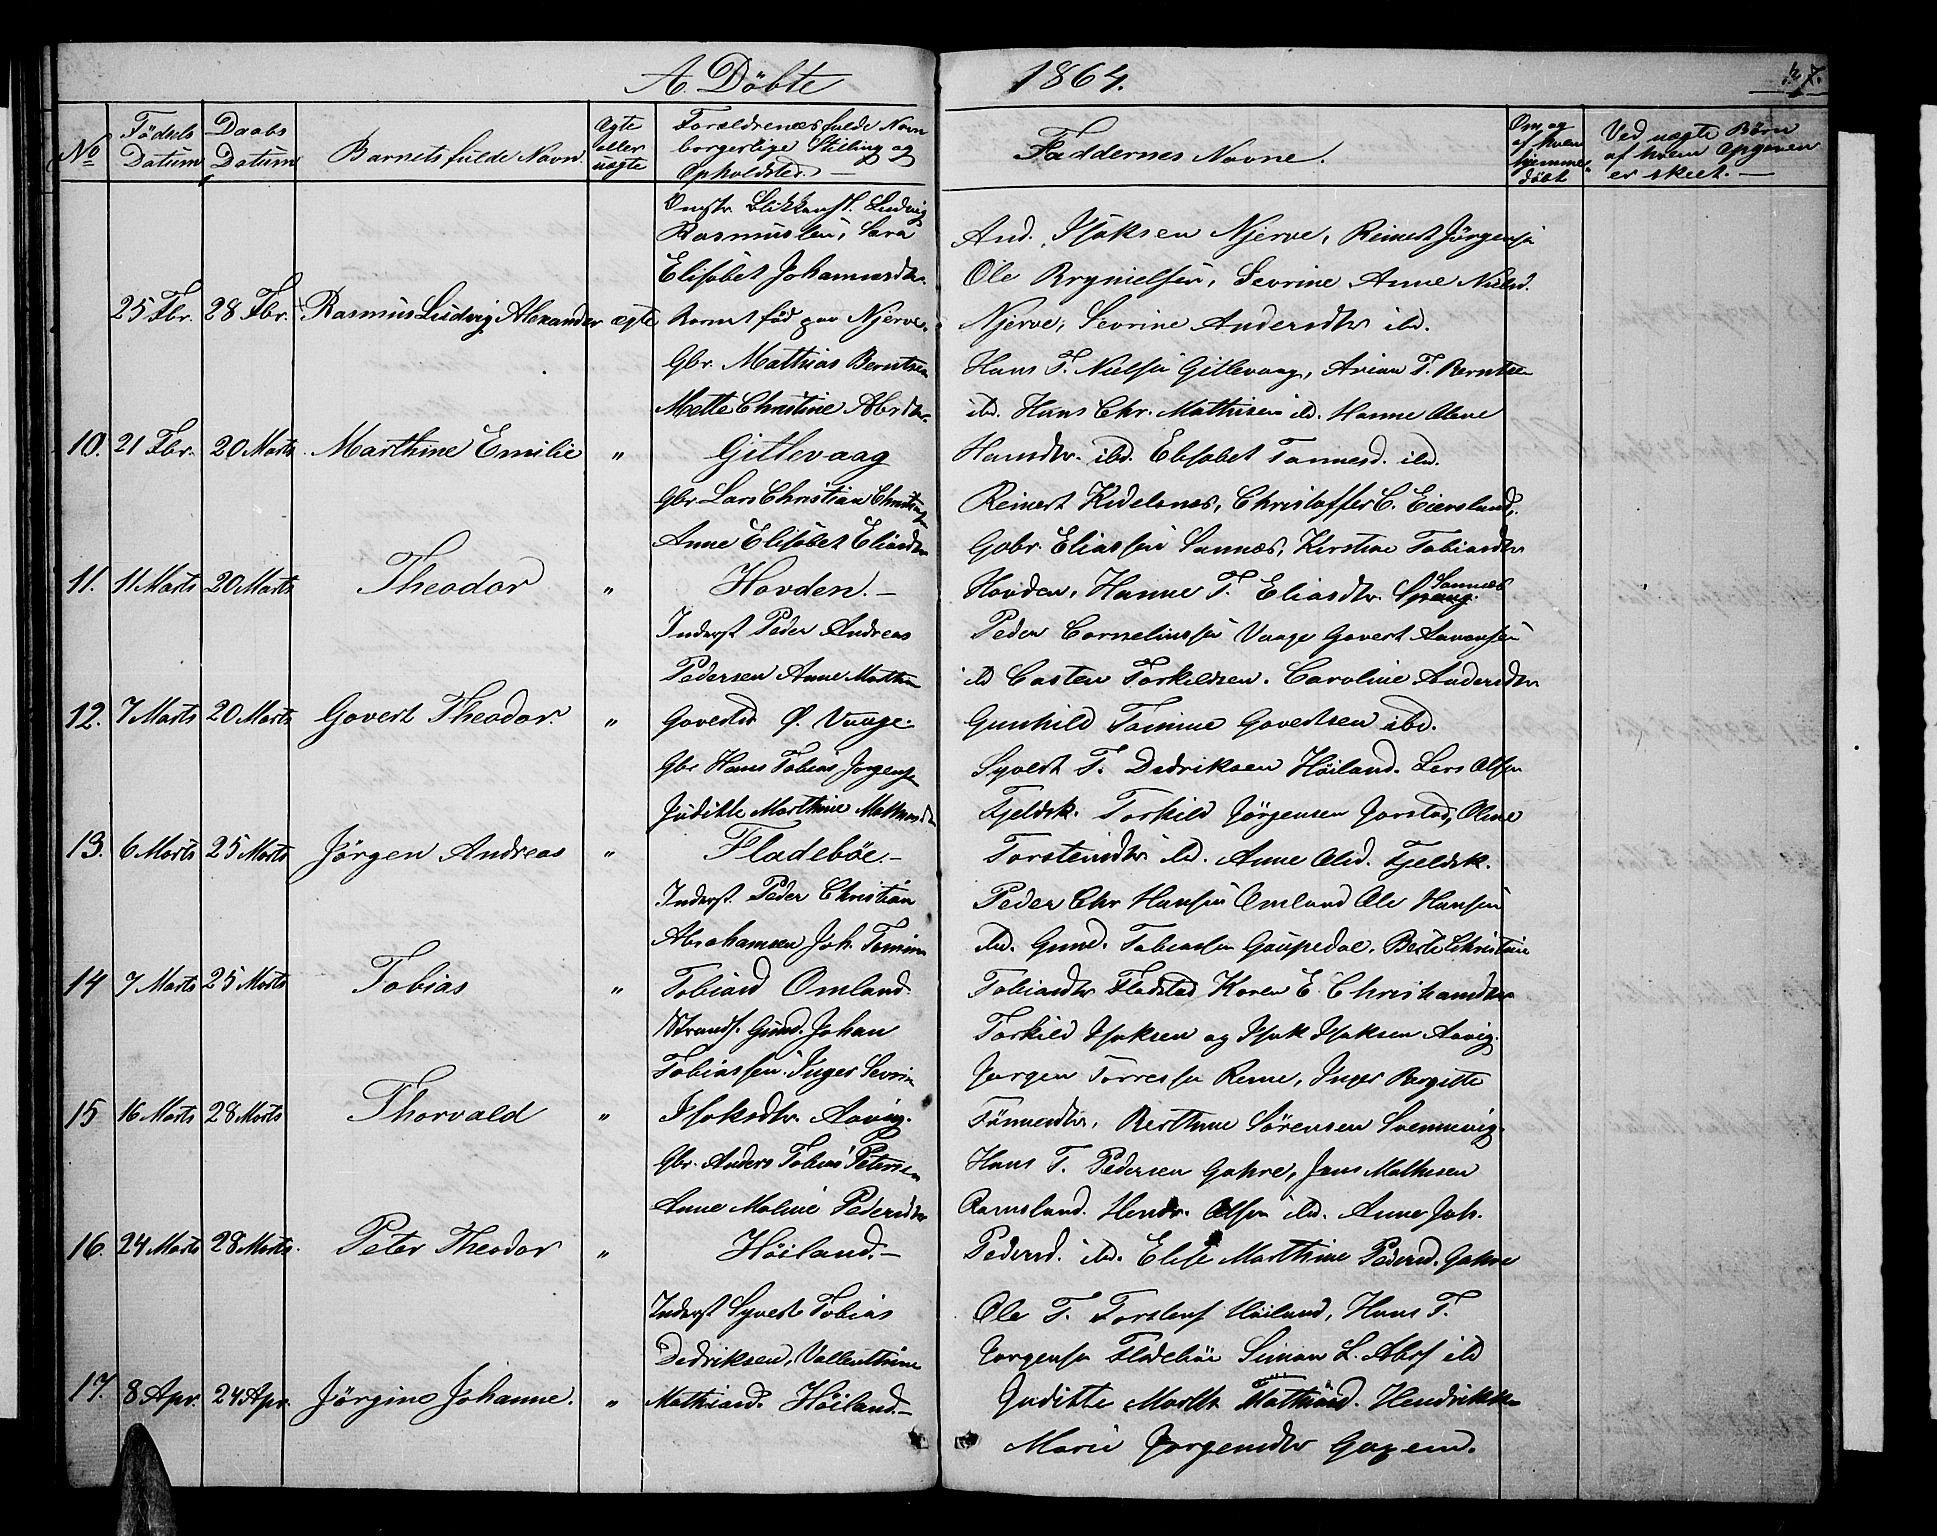 A. Döbte 1864. 27.
No
Föđsels Datum
Daabs Datum
Barnets fulde Navn.
Ægte eller uægte
Forældrenes fulde Navn borgerlige Stilling og Opholdsted. —
Faddernes Navne.
Om og af hvem hjemme døbt
Ved uægte Børn af hvem Opgaven er skeet. —
25 Fbr. 28 Fbr. Rasmus Ludvig Alexander ægte
Ludvig
Rasmussen, Sara
Elisabet Johannesdtr.
Barnet fød paa Njerve.
And. Isaksen Njerve, Reinert Jörgensen
Ole Brynielsen, Sevrine Anne Nielsd.
Njerve, Sevrine Andersdtr ibd.
10. 21 Fbr. 20 Marts Marthine Emilie "
Gbr. Mathias Berntsen
Mette Christine Absdtr.
Gitlevaag
Hans T. Nielsen Gitlevaag, Arian T. Berntsen
ibd. Hans Chr. Mathisen ibd. Hanne Olene
Hansdtr. ibd. Elisabet Tønnesd. ibd.
11. 11 Marts 20 Marts Theodor "
Gbr Lars Christian Christensen
Anne Elisabet Eliasdtr
Hovden. —
Reinert Kidelsnes, Christoffer C. Eiersland,
Gabr. Eliassen Sannes, Kirstine Tobiasdtr
Hovden, Hanne T. Eliasdtr. Sannes
12. 7 Marts 20 Marts Govert Theodor. "
Inderst Peder Andreas
Pedersen Anne Marthine
Govertsd Ø. Vaage.
Peder Corneliussen Vaage Govert Aanonsen
ibd Casten Torkildsen. Caroline Andersdtr
Gunhild Tomine Govertsen ibd.
13. 6 Marts 25 Marts Jørgen Andreas "
Gbr Hans Tobias Jørgensen
Juditte Marthine Mathiasd
Fladebøe. —
Syvert T. Dedriksen Høiland. Lars Olsen
Fjeldsk. Torkild Jørgensen Jaastad, Oline
Torsteindtr ibd. Anne Olsd. Fjeldsk.
14 7 Marts 25 Marts Tobias "
Inderst. Peder Christian
Abrahamsen Joh. Tomine
Tobiasd Omland.
Peder Chr Hansen Omland Ole Hansen
ibd. Gund. Tobiassen Gaupedal, Berte Christine
Tobiasdtr Fladstad Karen E. Christiansdtr
15 16 Marts 28 Marts Thorvald "
Strands. Gund. Johan
Tobiassen. Inger Sevrine
Isaksdtr. Aavig.
Torkild Isaksen og Isak Isaksen Aavig.
Jørgen Tørresen Reme, Inger Bergitte
Tønnesdtr, Berthine Sørensen Svennevig.
16. 24 Marts 28 Marts. Peter Theodor "
Gbr. Anders Tobias Petersen
Anne Maline Pedersdtr
Høiland. —
Hans T. Pedersen Gahre, Jens Mathesen
Ramsland. Hendr. Olsen ibd. Anne Joh.
Pedersd. ibd. Elise Marthine Pedersd. Gahre
17. 8 Apr. 24 Apr. Jørgine Johanne. "
Inderst Syvert Tobias
Dedriksen, Vallenthine
Mathiasd. Høiland. —
Ole T. Torstens Høiland, Hans T.
Jørgensen Fladebøe Simon L. Abrs ibd
Juditte Marth Mathiasd. Hendrikke
Marie Jørgensdtr